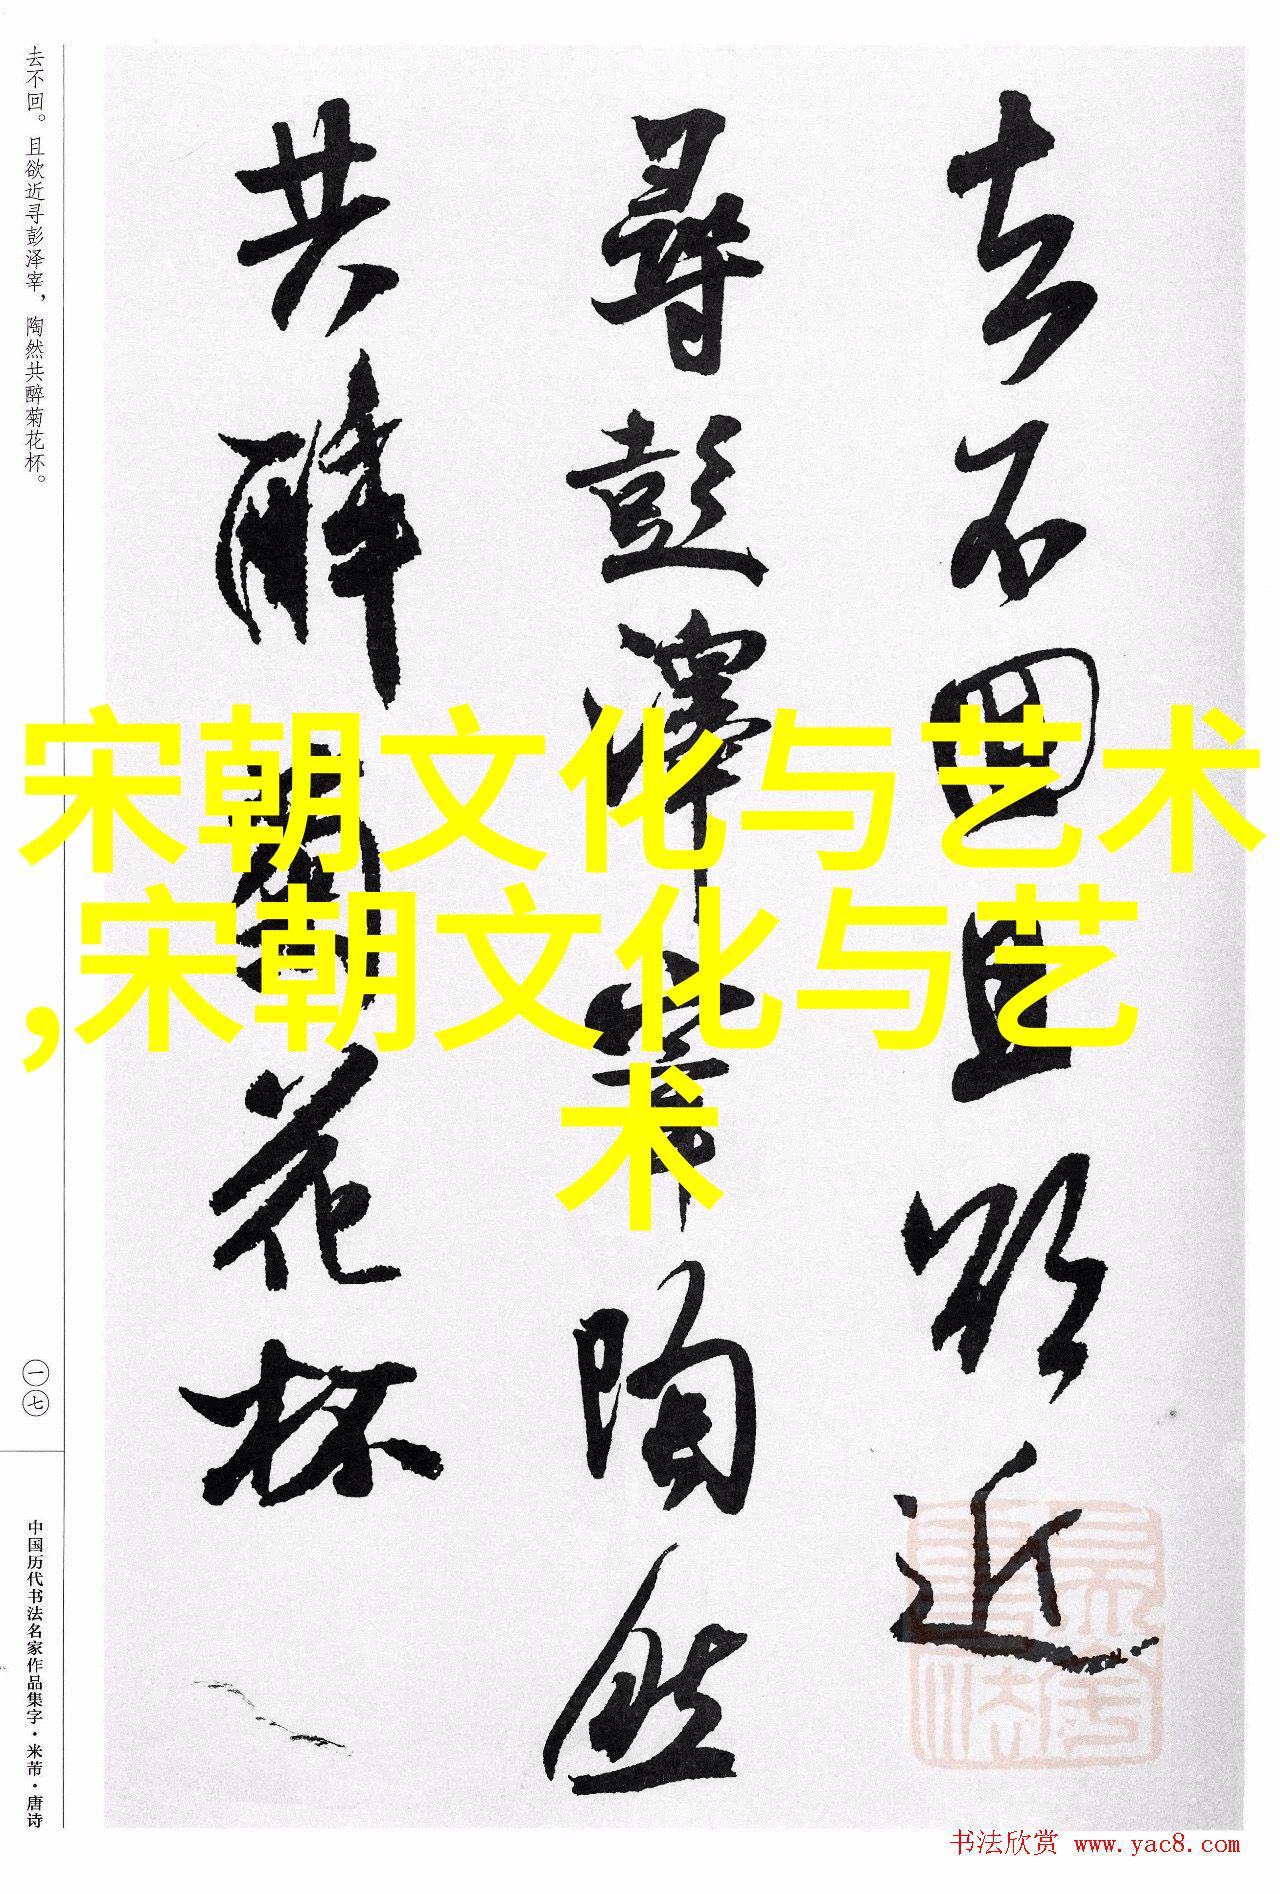 去不回且欲近
尋彭澤宰陶然
共醉菊花杯
去不回。且欲近寻彭泽宰，陶然共醉菊花杯。
一七
中国历代书法名家作品集字·米芾·唐诗
宋朝文化与艺术
,宋朝文化与艺
术
书法欣赏 www.yac8.com